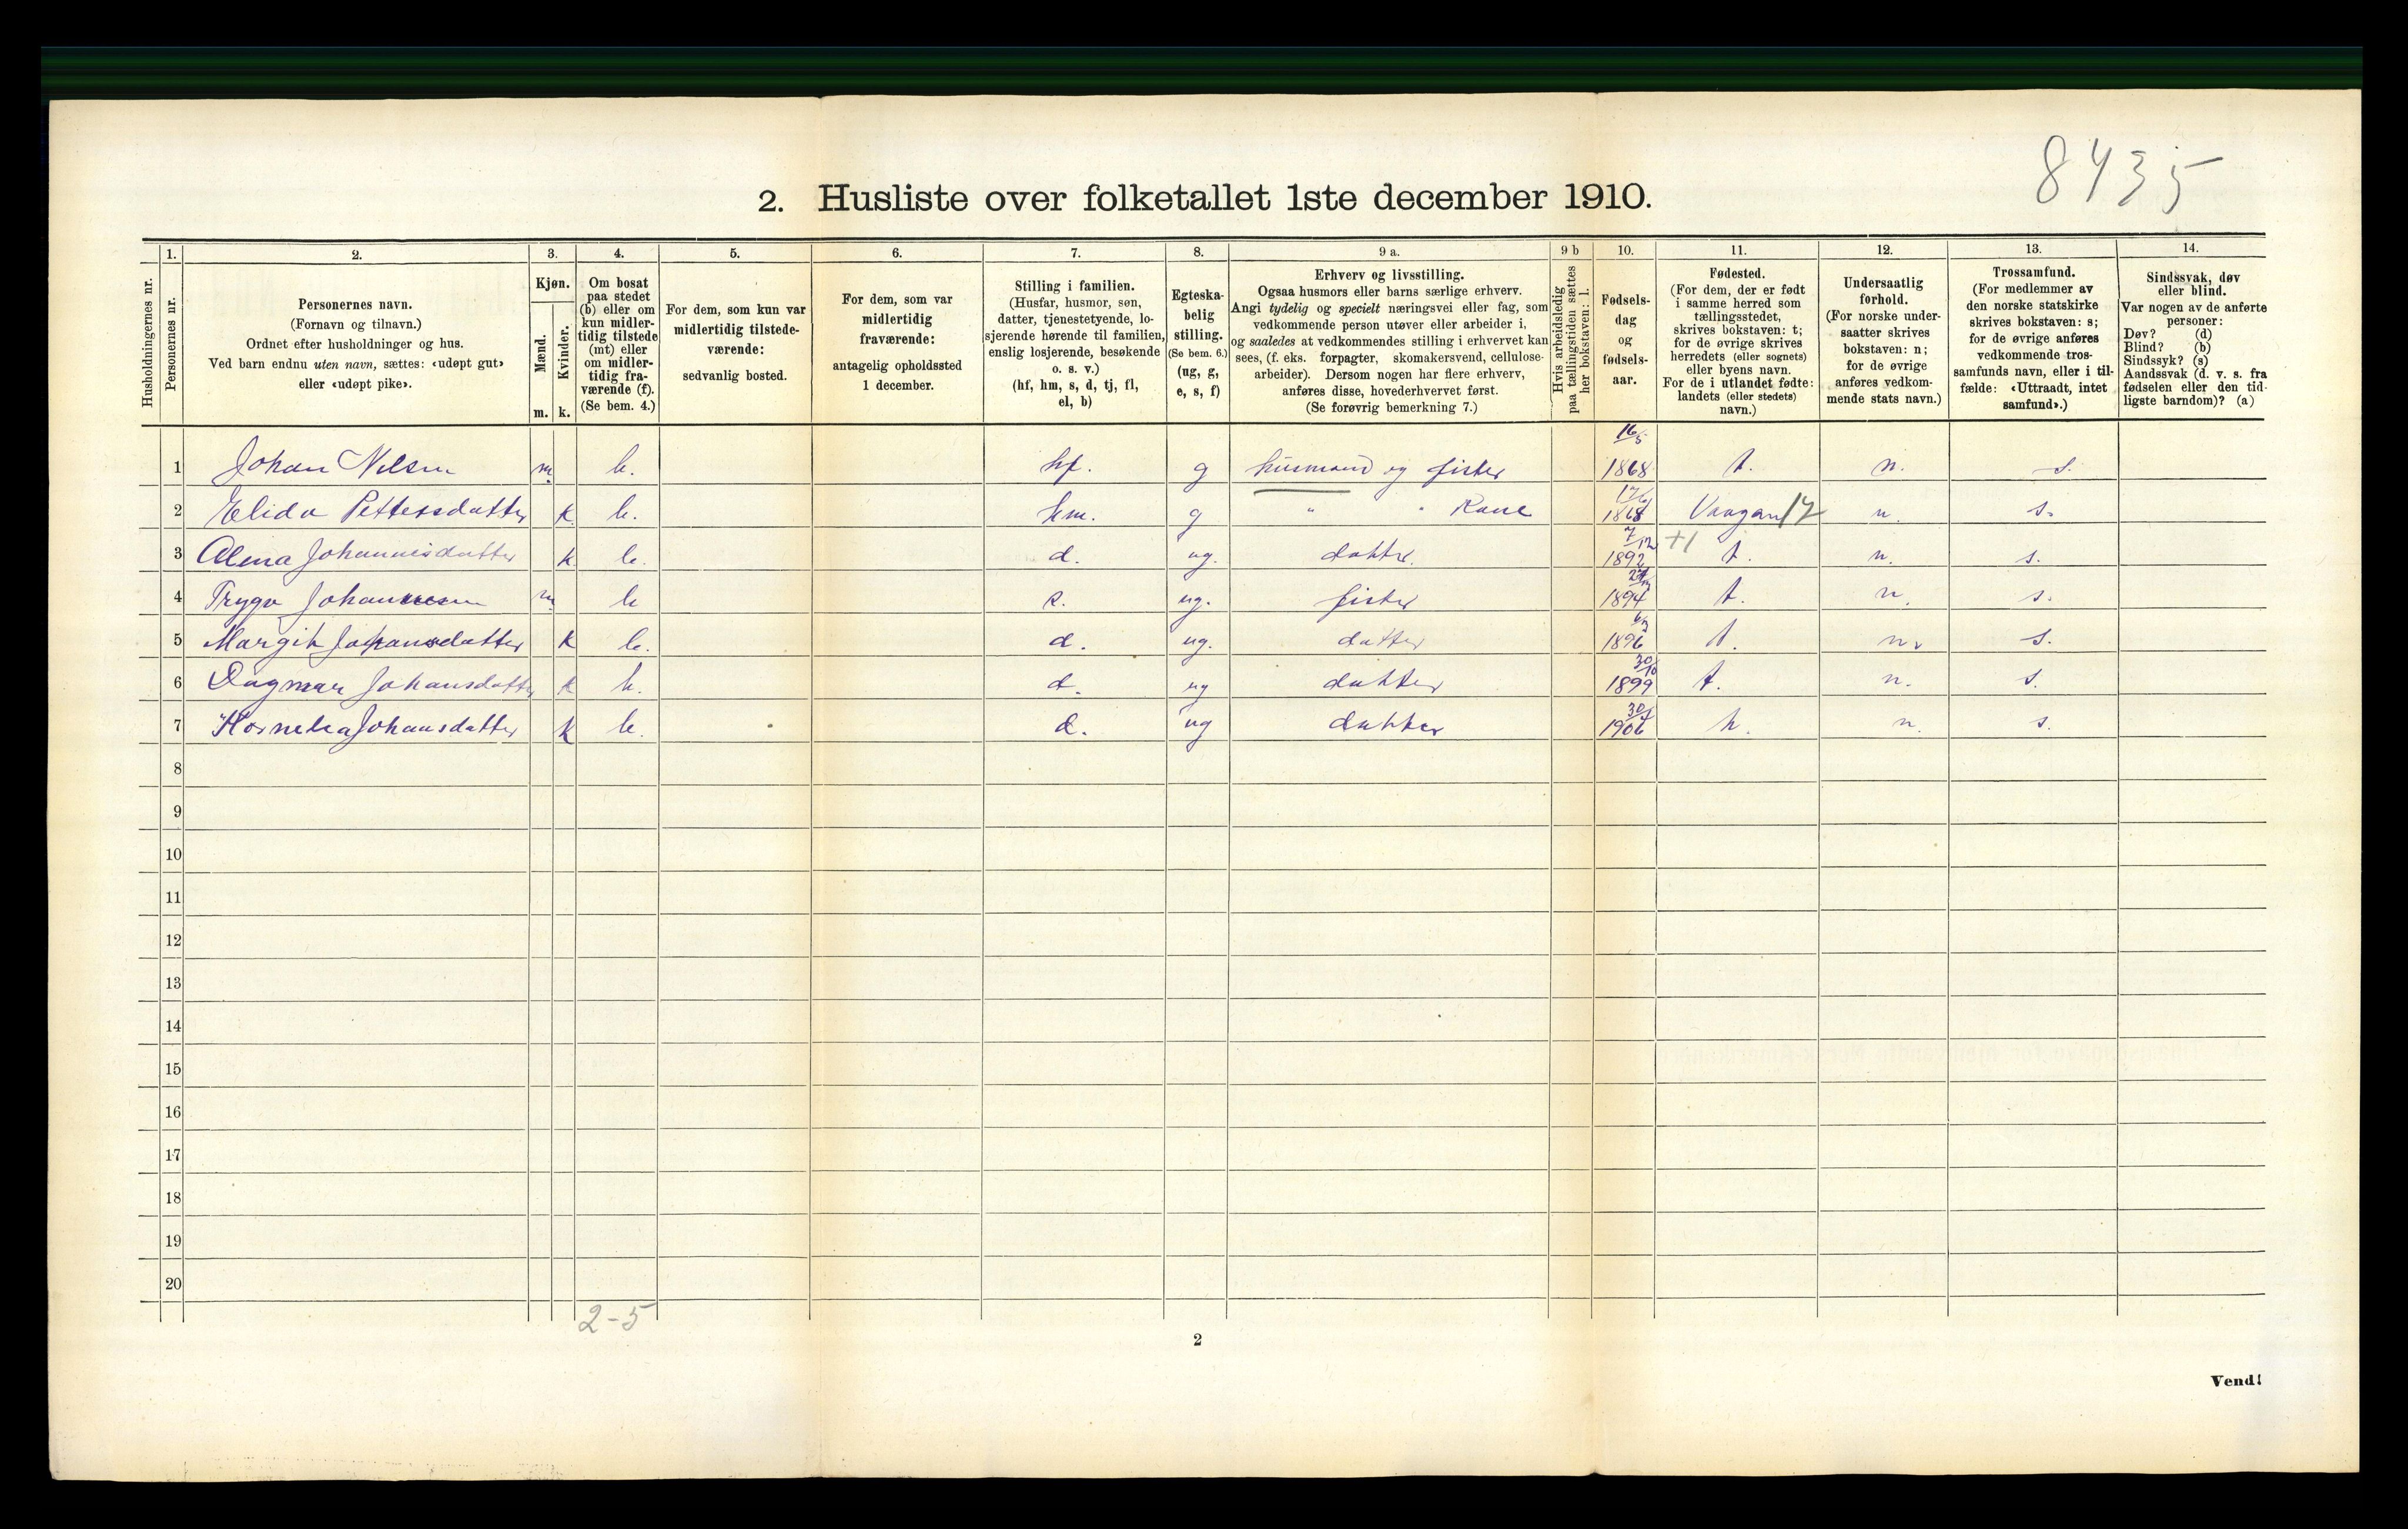 8435
2. Husliste over folketallet 1ste december 1910.
Husholdningernes nr.
1.
Personernes nr.
2.
Personernes navn.
(Fornavn og tilnavn.)
Ordnet efter husholdninger og hus.
Ved barn endnu uten navn, sættes: «udøpt gut»
eller «udøpt pike».
3.
Kjøn.
Mænd.
Kvinder.
m. k.
4.
Om bosat
paa stedet
(b) eller om
kun midler-
tidig tilstede
(mt) eller
om midler-
tidig fra-
værende (f).
(Se bem. 4.)
5.
For dem, som kun var
midlertidig tilstede-
værende:
sedvanlig bosted.
6.
For dem, som var
midlertidig
fraværende:
antagelig opholdssted
1 december.
7.
Stilling i familien.
(Husfar, husmor, søn,
datter, tjenestetyende, lo-
sjerende hørende til familien,
enslig losjerende, besøkende
o. s. v.)
(hf, hm, s, d, tj, fl,
el, b)
8.
Egteska-
belig
stilling.
(Se bem. 6.)
(ug, g,
e, s, f)
9 a.
Erhverv og livsstilling.
Ogsaa husmors eller barns særlige erhverv.
Angi tydelig og specielt næringsvei eller fag, som
vedkommende person utøver eller arbeider i,
og saaledes at vedkommendes stilling i erhvervet kan
sees, (f. eks. forpagter, skomakersvend, cellulose-
arbeider). Dersom nogen har flere erhverv,
anføres disse, hovederhvervet først.
(Se forøvrig bemerkning 7.)
9 b
Hvis arbeidsledig
paa tællingstiden sættes
her bokstaven: l.
10.
Fødsels-
dag
og
fødsels-
aar.
11.
Fødested.
(For dem, der er født
i samme herred som
tællingsstedet,
skrives bokstaven: t;
for de øvrige skrives
herredets (eller sognets)
eller byens navn.
For de i utlandet fødte:
landets (eller stedets)
navn.)
12.
Undersaatlig
forhold.
(For norske under-
saatter skrives
bokstaven: n;
for de øvrige
anføres vedkom-
mende stats navn.)
13.
Trossamfund.
(For medlemmer av
den norske statskirke
skrives bokstaven: s;
for de øvrige anføres
vedkommende tros-
samfunds navn, eller i til-
fælde: «Uttraadt, intet
samfund».)
14.
Sindssvak, døv
eller blind.
Var nogen av de anførte
personer:
Døv? (d)
Blind? (b)
Sindssyk? (s)
Aandssvak (d. v. s. fra
fødselen eller den tid-
ligste barndom)? (a)
1 Johan Nilsen m. b. hf. g husmand og fisker 16/5 1868 t. n. s.
2 Elida Pettersdatter k. b. hm. g " " Kone 1868 Vaagan 17 n. s.
3 Alma Johannesdatter k b. d. ug. datter. 7/12 1892 +1 t. n. s.
4 Trygv m. b s. ug. fisker 1894 t. n. s.
5 Margit Johansdatter k b. d. ug. datter 1896 t. n. s.
6 Dagmar Johansdatter k b. d. ug datter 30/10 1899 t. n. s.
7 Kornelia Johansdatter k b. d. ug datter 1906 n. s.
8
9
10
11
12
13
14
15
16
17
18
19
20
2-5
2
Vend!